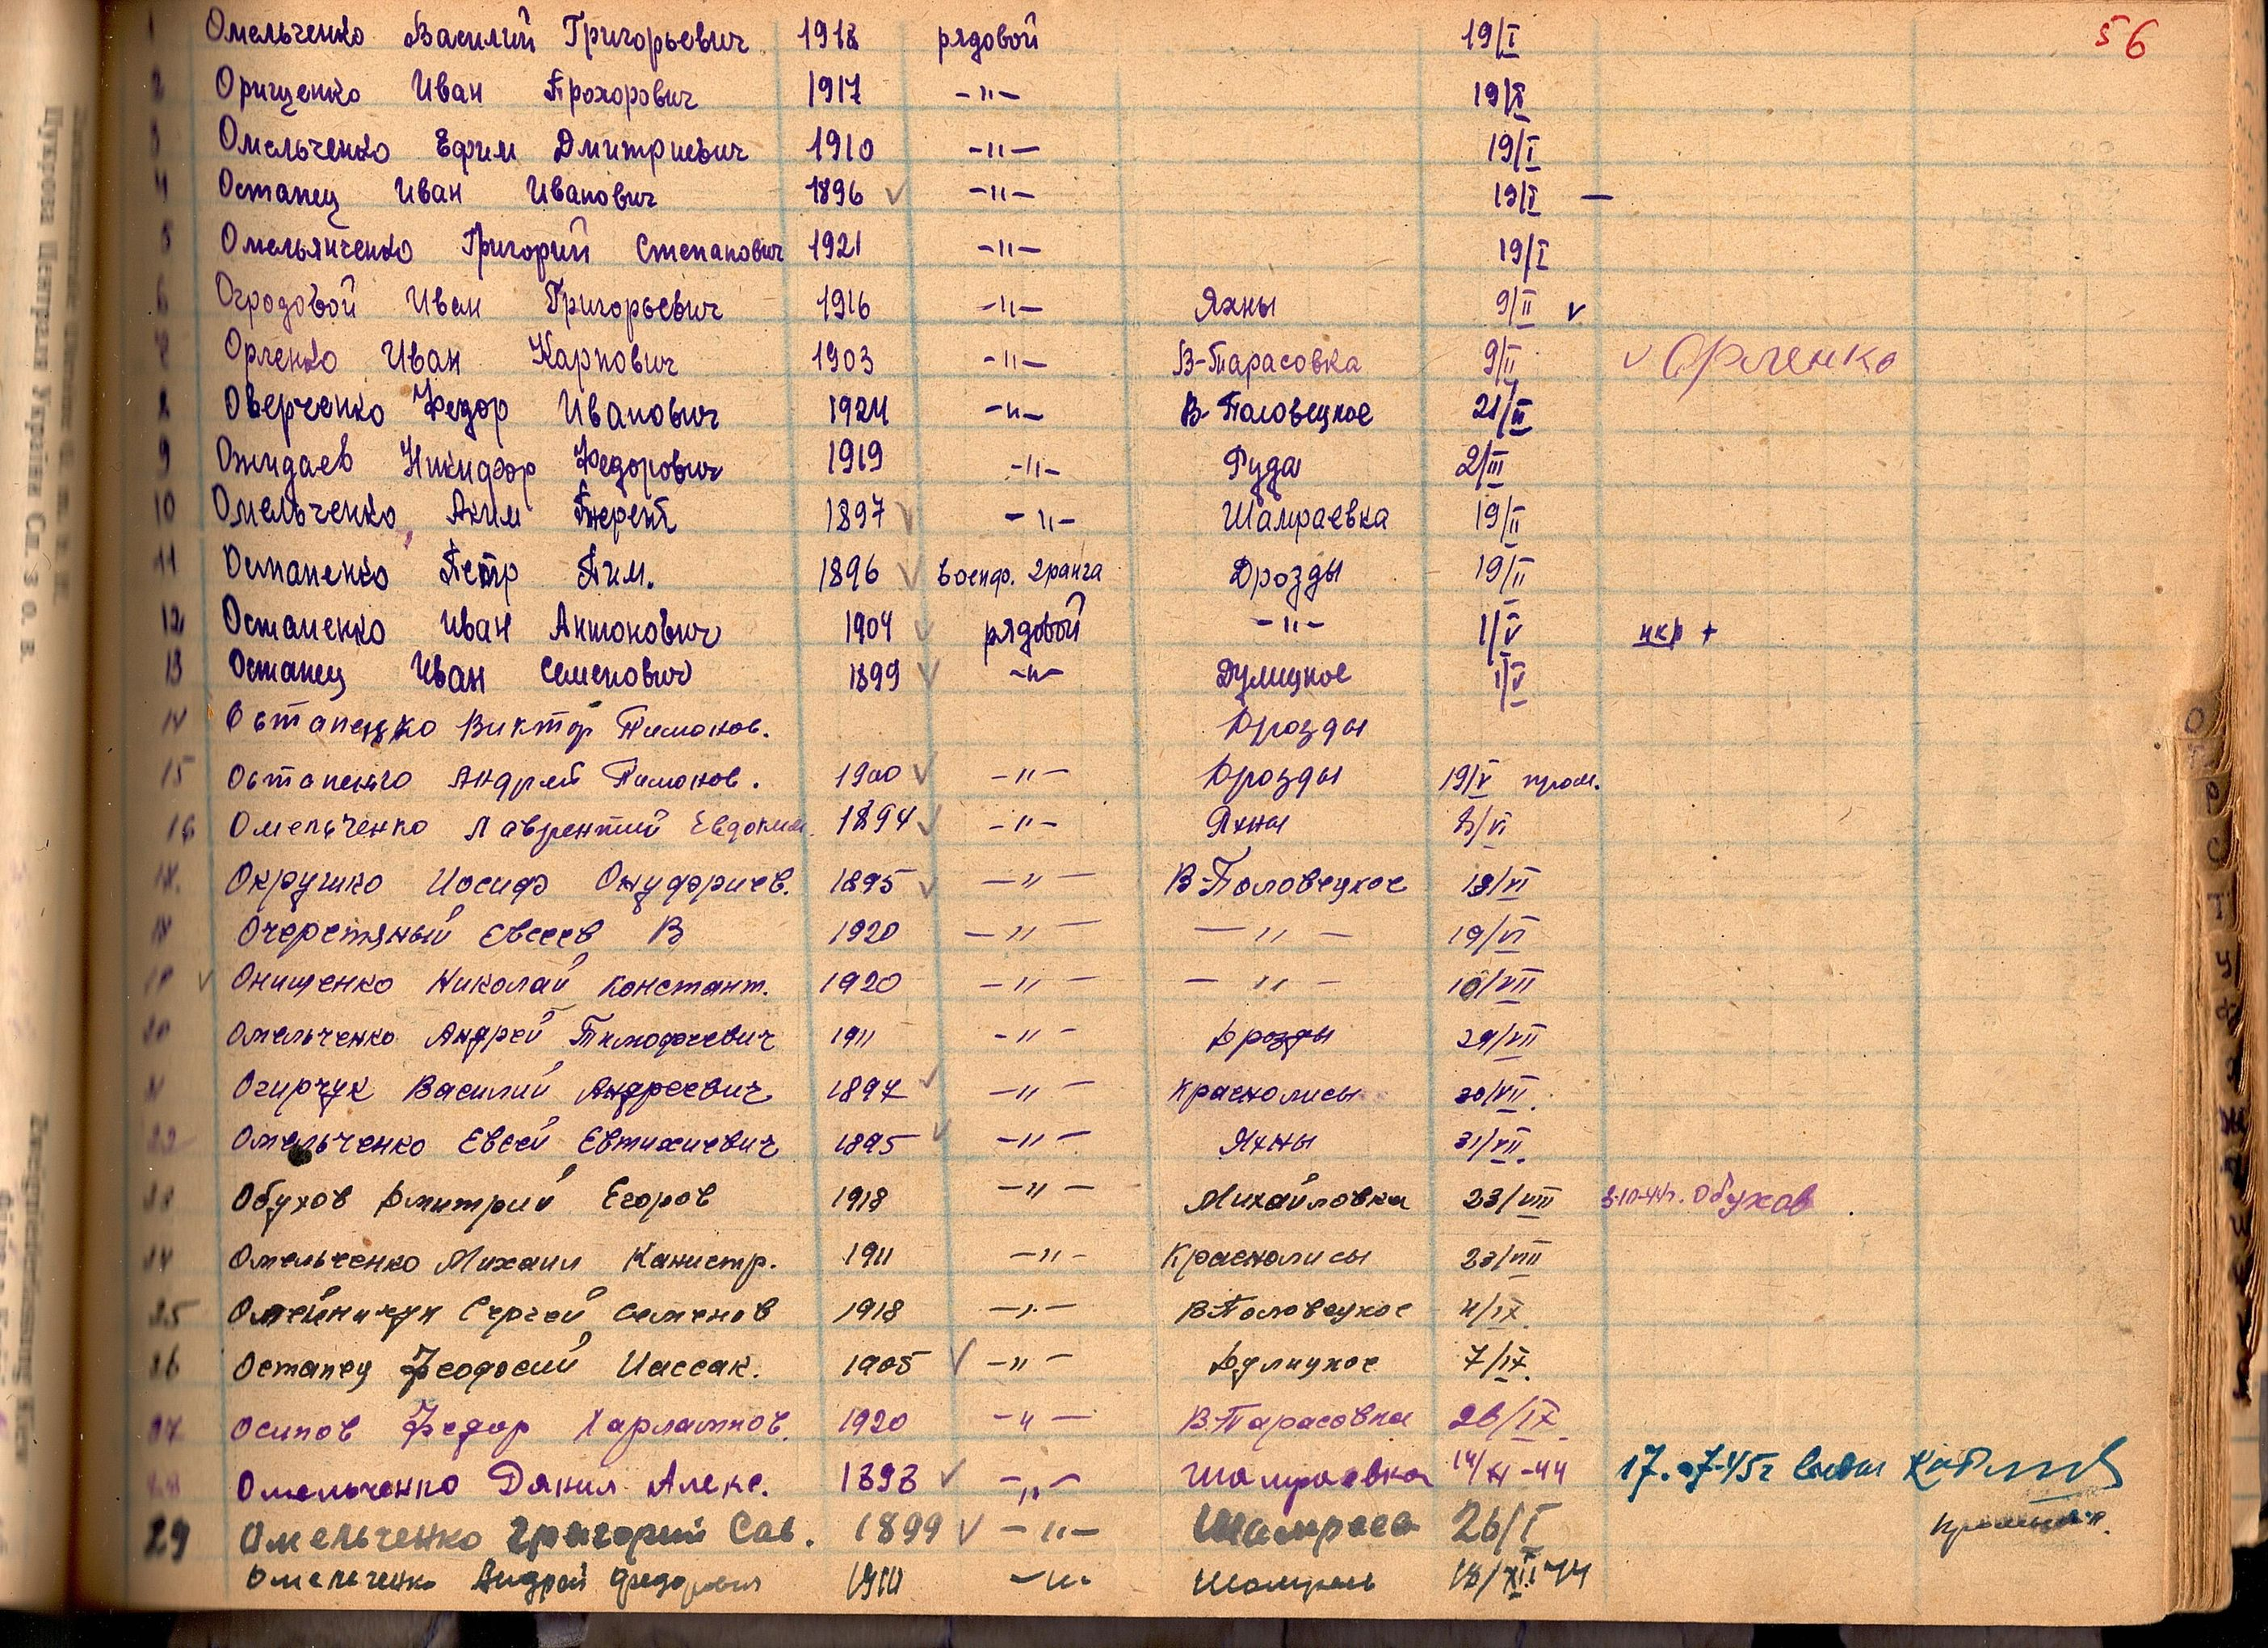 56
1 Омельченко Василий Григорьевич 1918 рядовой 19/I
2 Орищенко Иван Прохорович 1917 -"- 19/I
3 Омельченко Ефим Дмитриевич 1910 -"- 19/I
4 Остапец Иван Иванович 1896 ✓ -"- 19/I —
5 Омельянченко Григорий Степанович 1921 -"- 19/I
6 Огродовой Иван Григорьевич 1916 -"- Яхны 9/II v
7 Орленко Иван Карпович 1903 -"- В-Тарасовка 9/II v Орленко
8 Оверченко Федор Иванович 1924 -"- В-Половецкое 21/II
9 Ожидаев Никифор Федорович 1919 -"- Руда 2/III
10 Омельченко Аким Терент 1897 ✓ -"- Шамраевка 19/II
11 Остапенко Петр Тим. 1896 ✓ военф. 2ранга Дрозды 19/II
12 Остапенко Иван Антонович 1904 ✓ рядовой -"- 1/V нкр +
13 Остапец Иван Семенович 1899 ✓ -"- Дулицкое 1/V
14 Остапенко Виктор Тимонов. Дрозды
15 Остапенко Андрей Тимонов. 1900 ✓ -"- Дрозды 19/V
16 Омельченко Лаврентий Евдоким. 1894 ✓ -"- Яхны 3/VI
17. Окрушко Иосиф Онуфриев. 1895 ✓ -"- В-Половецкое 18/VI
18 Очеретяный Евсеев В 1920 -"- -"- 19/VI
19 ✓ Онищенко Николай Констант. 1920 -"- -"- 10/VII
20 Омельченко Андрей Тимофеевич 1911 -"- Дрозды 29/VII
21 Огирчук Василий Андреевич 1897 ✓ -"- Краснолисы 30/VII.
22 Омельченко Евсей Евтихиевич 1895 ✓ -"- Яхны 31/VII.
23 Обухов Дмитрий Егоров 1918 -"- Михайловка 23/VIII 3-10-44г. Обухов
24 Омельченко Михаил Канистр. 1911 -"- Краснолисы 23/VIII
25 Сергей Семенов 1918 -"- В-Половецкое 4/IX.
26 Остапец Феодосий Иассак. 1905 ✓ -"- Дулицкое 7/IX.
27 Осипов Федор Харлампов. 1920 -"- В-Тарасовка 26/IX.
28 Омельченко Данил Алекс. 1893 ✓ -"- Шамраевка 14/XI-44 17.07-45г
29 Омельченко Григорий Сав. 1899 ✓ -"- Шамраев 26/I
Омельченко Андрей Федорович 1910 -"- 18/XII-44